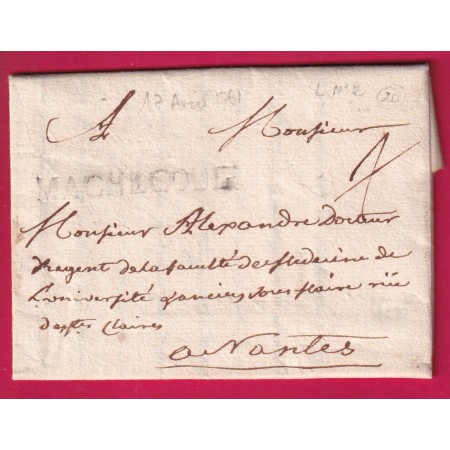 17 Avril 1761
L N° 2 (20)
A Monsieur
MACHECOUL
Monsieur Alexandre Docteur
Regent de la faculté de Medecine de
L'université rüe
Claires
a Nantes